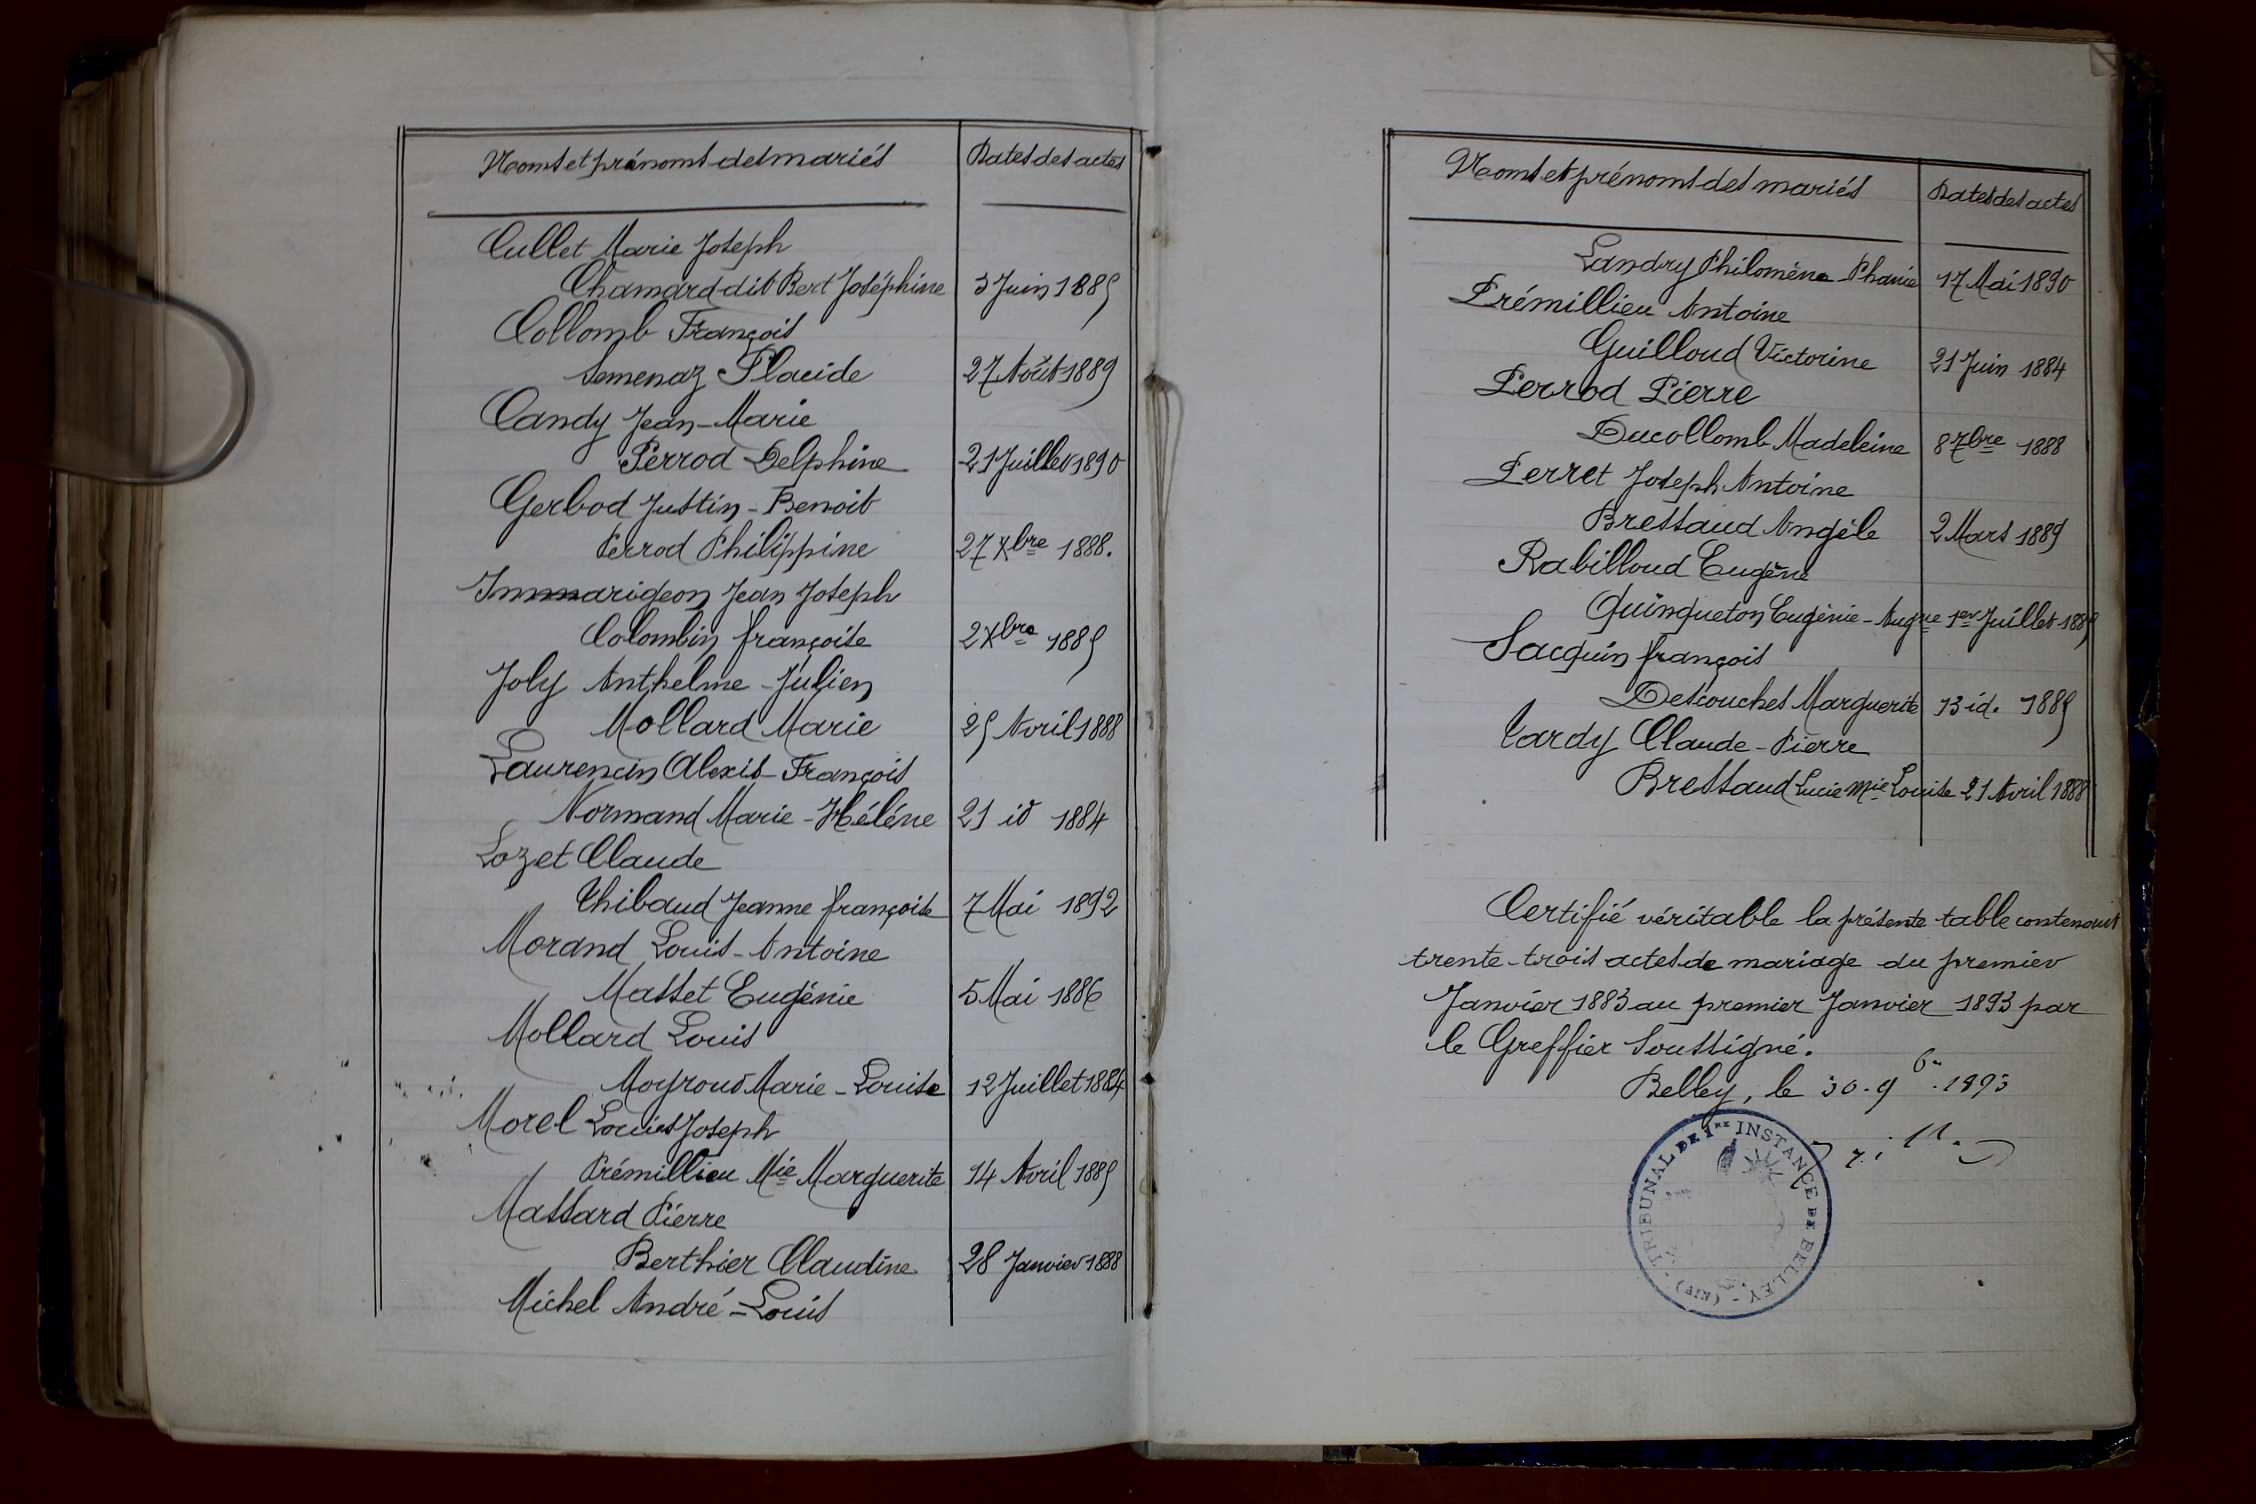 Noms et prénoms des mariés
Dates des actes
Cullet Marie Joseph
Chamard dit Bert Joséphine 3 Juin 1889
Collomb François
Semenaz Placide 27 Août 1889
Candy Jean-Marie
Perrod Delphine 21 Juillet 1890
Gerbod Justin-Benoit
Perrod Philippine 27 Xbre 1888.
Jean Joseph
Colombin françoise 2 Xbre 1889
Joly Anthelme-Julien
Mollard Marie 25 Avril 1888
Laurencin Alexis-François
Normand Marie-Hélène 21 id 1884
Lozet Claude
Thibaud Jeanne françoise 7 Mai 1892
Morand Louis-Antoine
Masset Eugénie 5 Mai 1886
Mollard Louis
Moyroud Marie-Louise 12 Juillet 1884
Morel Louis Joseph
Prémillieu Mie Marguerite 14 Avril 1889
Massard Pierre
Berthier Claudine 28 Janvier 1888
Michel André-Louis
Noms et prénoms des mariés
Dates des actes
Landry Philomène Phanie 17 Mai 1890
Prémillieu Antoine
Guilloud Victorine 21 Juin 1884
Perrod Pierre
Ducollomb Madeleine 8 7bre 1888
Perret Joseph Antoine
Bressaud Angèle 2 Mars 1889
Rabilloud Eugène
Quinqueton Eugénie-Augue 1er Juillet 1889
Sacquin françois
Descouches Marguerite 13 id. 1889
Tardy Claude-Pierre
Bressaud Lucie Mie Louise 21 Avril 1888
Certifié véritable la présente table contenant
trente-trois actes de mariage du premier
Janvier 1883 au premier Janvier 1893 par
le Greffier Soussigné.
Belley, le 30.9br.1893
TRIBUNAL DE 1RE INSTANCE DE BELLEY - (AIN) -